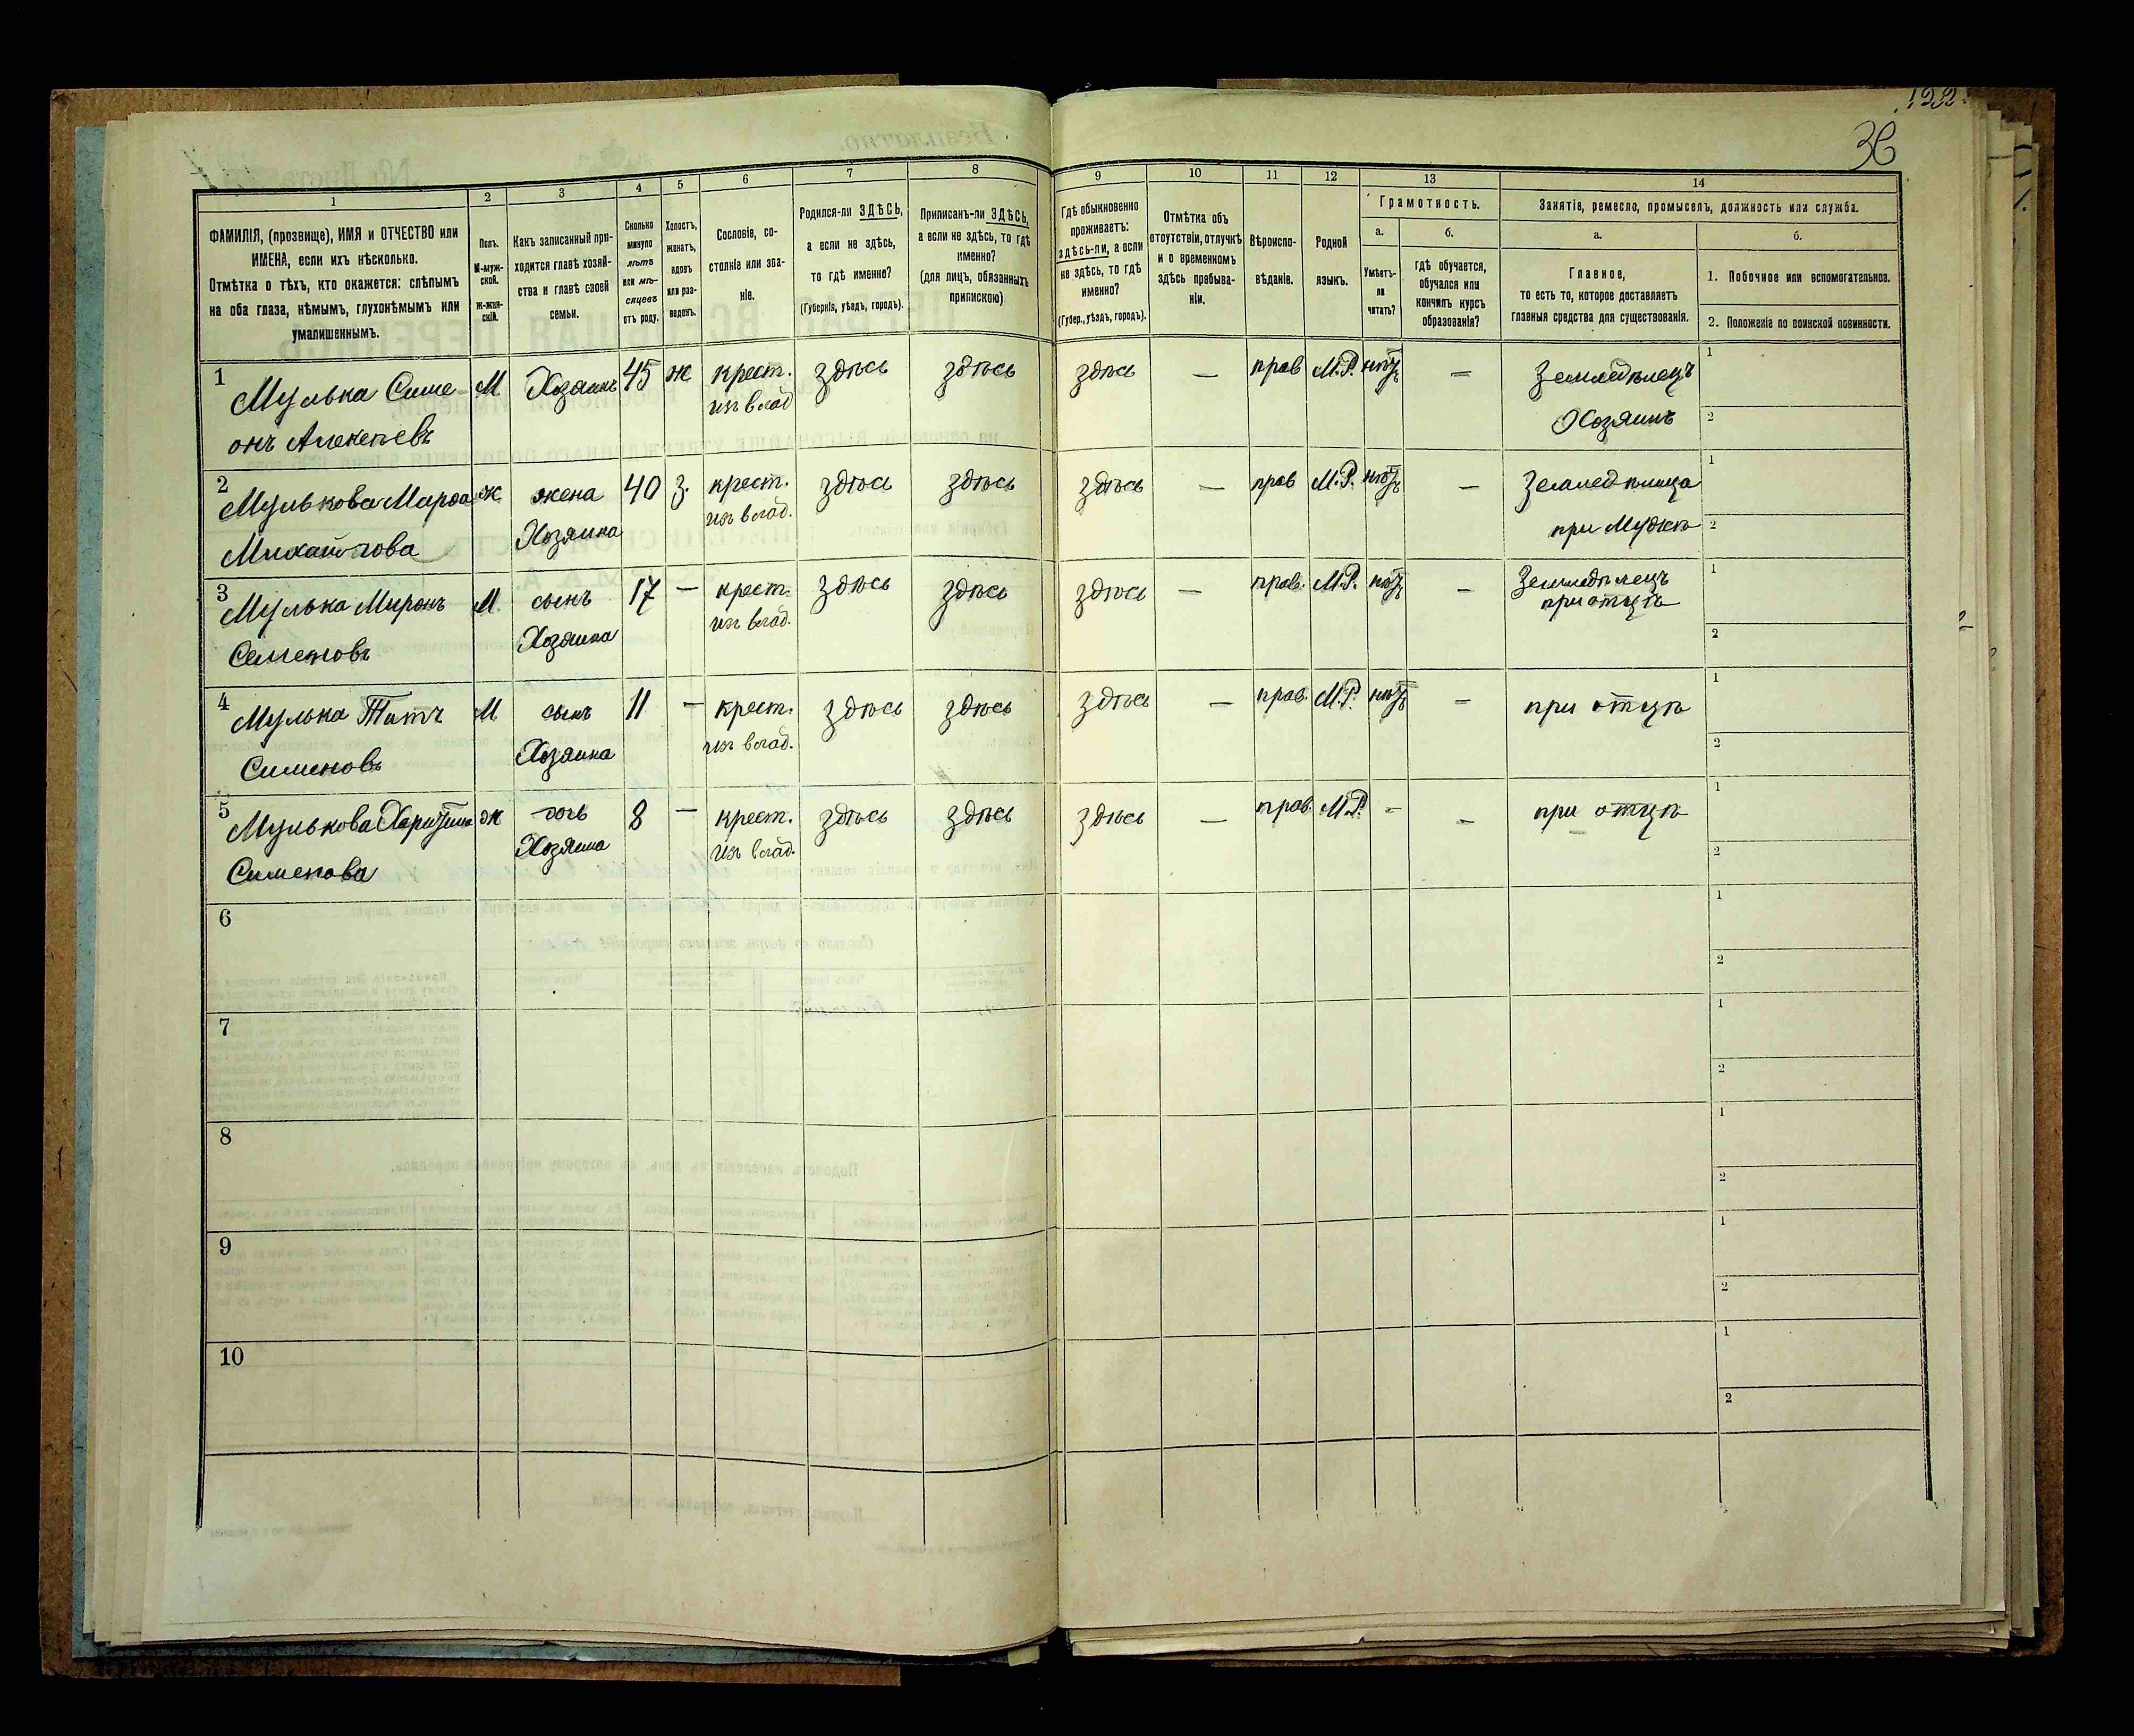 36
1
2
3
4
5
6
7
8
9
10
11
12
13
14
ФАМИЛІЯ, (прозвище), ИМЯ и ОТЧЕСТВО или
ИМЕНА, если ихъ нѣсколько.
Отмѣтка о тѣхъ, кто окажется: слѣпымъ
на оба глаза, нѣмымъ, глухонѣмымъ или
умалишеннымъ.
Полъ.
М-муж-
ской.
Ж-жен-
скій.
Какъ записанный при-
ходится главѣ хозяй-
ства и главѣ своей
семьи.
Сколько
минуло
лѣтъ
или мѣ-
сяцевъ
отъ роду.
Холостъ,
женатъ,
вдовъ
или раз-
веденъ.
Сословіе, со-
стояніе или зва-
ніе.
Родился-ли ЗДѢСЬ,
а если не здѣсь,
то гдѣ именно?
(Губернія, уѣздъ, городъ).
Приписанъ-ли ЗДѢСЬ,
а если не здѣсь, то гдѣ
именно?
(для лицъ, обязанныхъ
припискою)
Гдѣ обыкновенно
проживаетъ:
здѣсь-ли, а если
не здѣсь, то гдѣ
именно?
(Губер., уѣздъ, городъ).
Отмѣтка объ
отсутствіи, отлучкѣ
и о временномъ
здѣсь пребыва-
ніи.
Вѣроиспо-
вѣданіе.
Родной
языкъ.
Грамотность.
а.
Умѣетъ-
ли
читать?
б.
гдѣ обучается,
обучался или
кончилъ курсъ
образованія?
Занятіе, ремесло, промыселъ, должность или служба.
а.
Главное,
то есть то, которое доставляетъ
главныя средства для существованія.
б.
1. Побочное или вспомогательное.
2. Положеніе по воинской повинности.
1 Мулька Симе- М Хозяинъ 45 ж крест. здѣсь здѣсь здѣсь — прав М.Р. нѣтъ — Земледѣлецъ 1
онъ Алексѣевъ из влад Хозяинъ 2
2 Мулькова Марѳа ж жена 40 з. крест. здѣсь здѣсь здѣсь — прав М.Р. нѣтъ — Земледѣлица 1
Михайлова Хозяина из влад. при Мужѣ 2
3 Мулька Миронъ М сынъ 17 — крест. здѣсь здѣсь здѣсь — прав. М.Р. нѣтъ — Земледѣлецъ 1
Семеновъ Хозяина из влад. при отцѣ 2
4 Мулька Титъ М сынъ 11 — крест. здѣсь здѣсь здѣсь — прав. М.Р. нѣтъ — при отцѣ 1
Сименовъ Хозяина из влад. 2
5 Мулькова Харитина ж дочь 8 — крест. здѣсь здѣсь здѣсь — прав. М.Р. - — при отцѣ 1
Сименова Хозяина из влад. 2
6 1
2
7 1
2
8 1
2
9 1
2
10 1
2